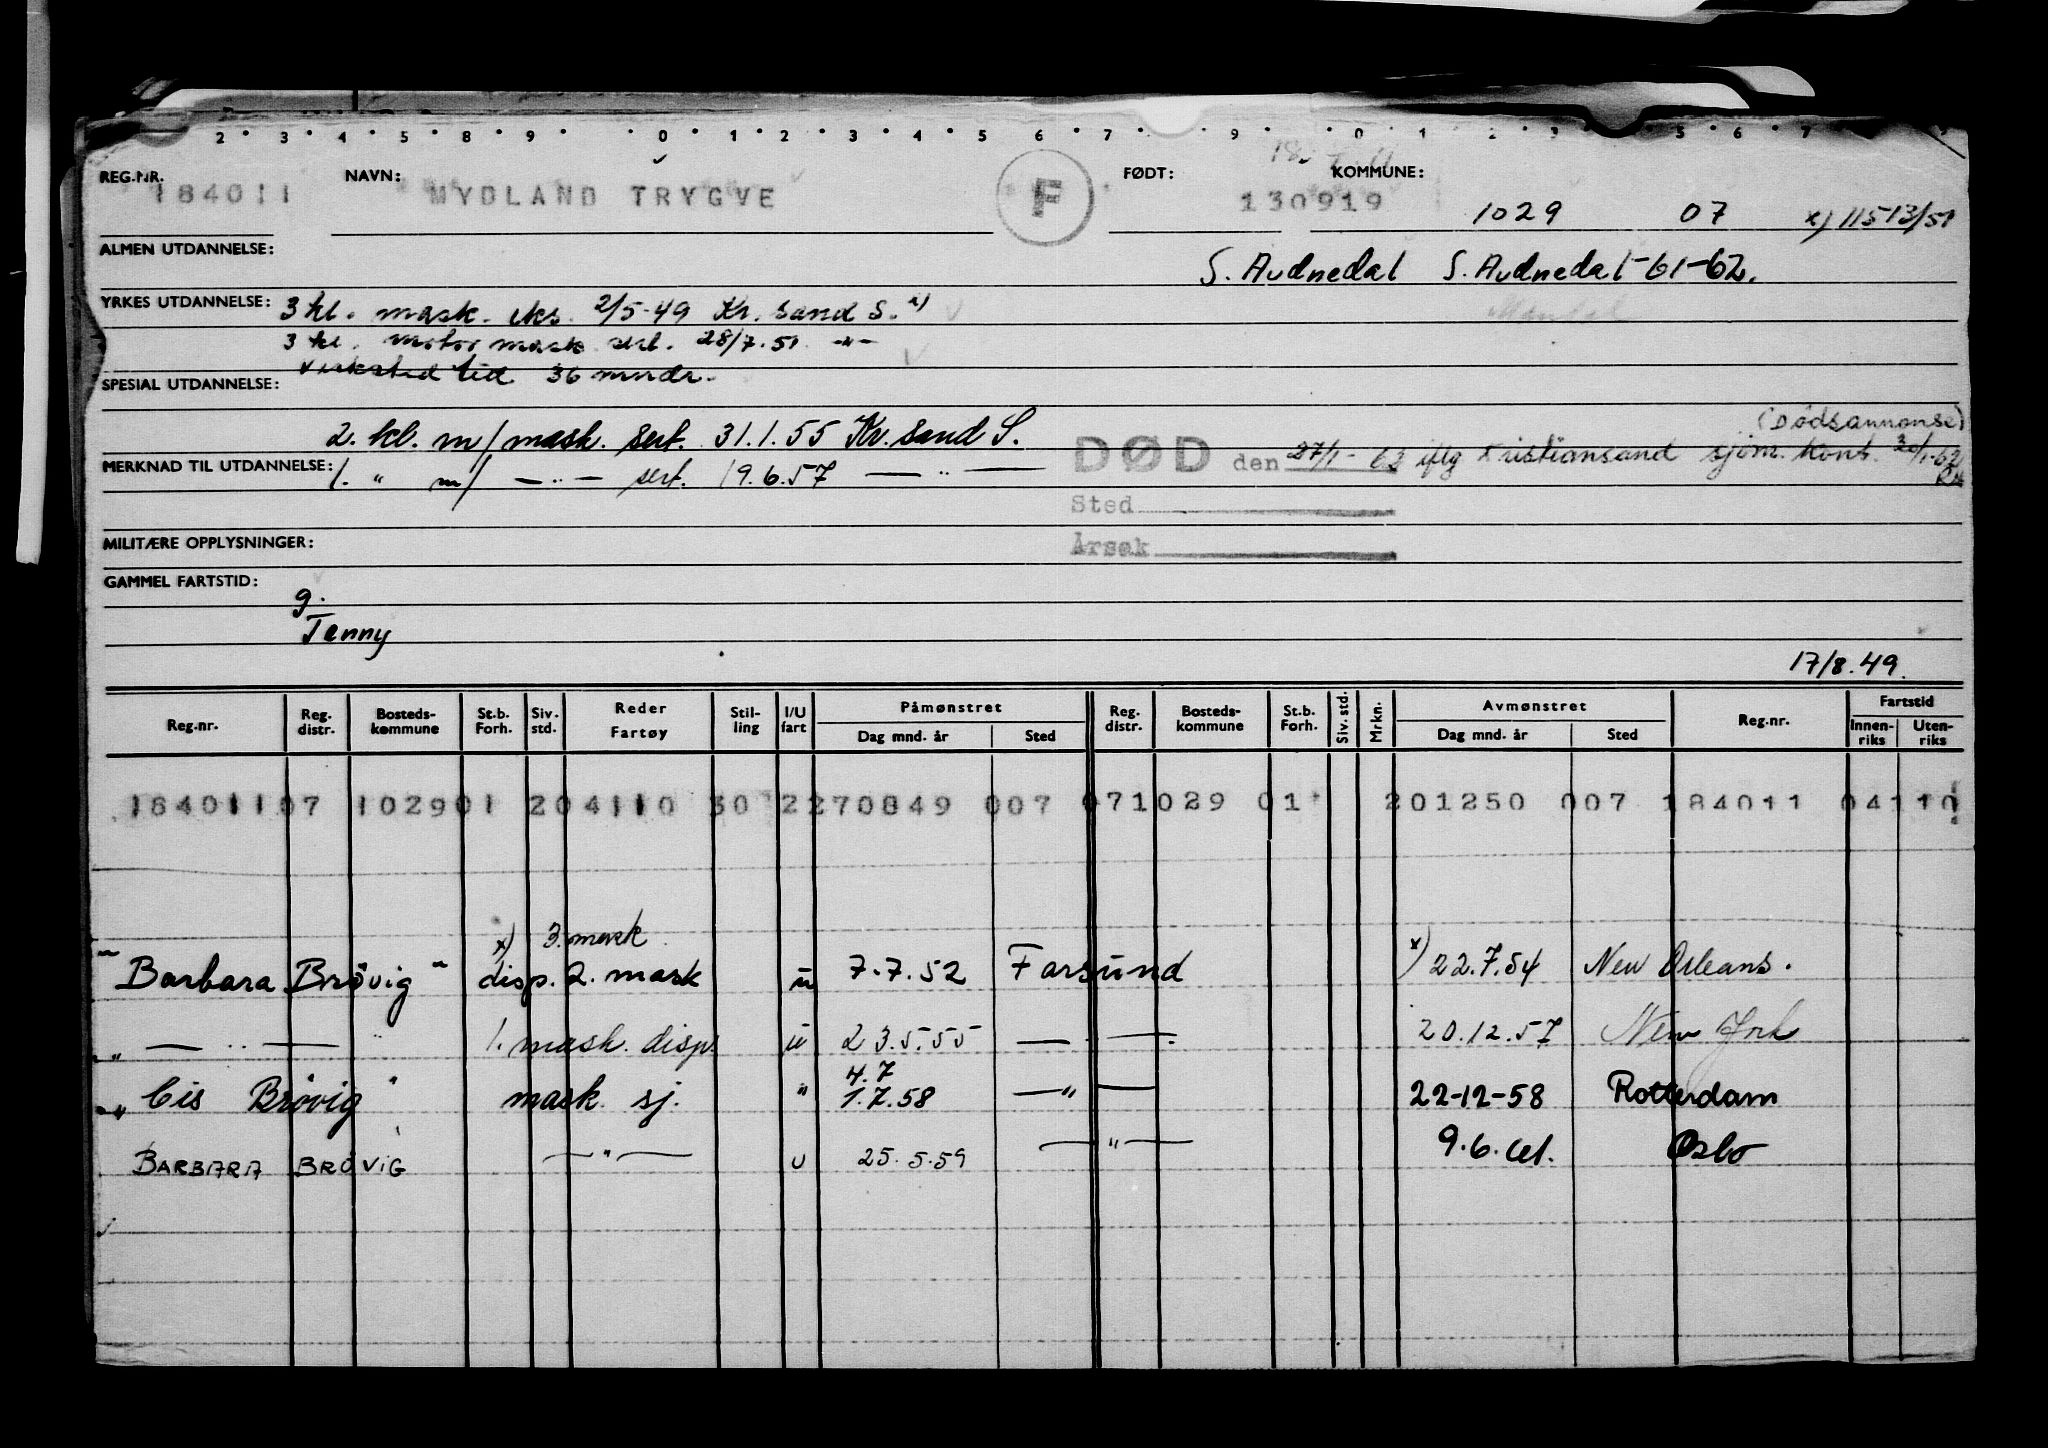 2 · 3 · 4 · 5 · 8 · 9 · 0 · 1 · 2 · 3 · 4 · 5 · 6 · 7 · 9 · 0 · 1 · 2 · 3 5 · 6 · 7
REG.NR. NAVN: FØDT: KOMMUNE:
184011 MYDLAND TRYGVE F 130919 1029 07 x) 11513/51
ALMEN UTDANNELSE: S. Audnedal S. Audnedal-61-62.
YRKES UTDANNELSE: 3 kl. mask. eks. 2/5-49 Kr. sand S. x)
Mandal
3 kl. motor mask sert. 28/7.51 -"-
verksted tid 36 mndr.
SPESIAL UTDANNELSE:
(Dødsannonse)
2. kl. m/mask. sert. 31.1.55 Kr. sand S.
DØD den 27/1-62 iflg Kristiansand sjøm. kont. 30/1-62
MERKNAD TIL UTDANNELSE: 1. " m/ — " — sert. 19.6.57 — " —
Sted
MILITÆRE OPPLYSNINGER:
Årsak
GAMMEL FARTSTID:
g.
Tenny
17/8.49.
Reg.nr. Reg. distr. Bosteds- kommune St.b. Forh. Siv. std. Reder Fartøy Stil- ling I/U fart Påmønstret Dag mnd. år Sted Reg. distr. Bosteds- kommune St.b. Forh. Siv. std. Mrkn. Avmønstret Dag mnd. år Sted Reg.nr. Fartstid Innen- riks Uten- riks
184011 07 1029 01 2 04110 30 2 270849 007 07 1029 01 201250 007 184011 04110
x) 3. mask
"Barbara Brøvig" disp. 2. mask u 7.7.52 Farsund x) 22.7.54 New Orleans.
" — " — " 1. mask. disp. u 23.5.55 — " — 20.12.57 New York
4.7
"Cis Brøvig" mask sj. " 1.7.58 — " — 22-12-58 Rotterdam
BARBARA BRØVIG — " — u 25.5.59 — " — 9.6.61. Oslo